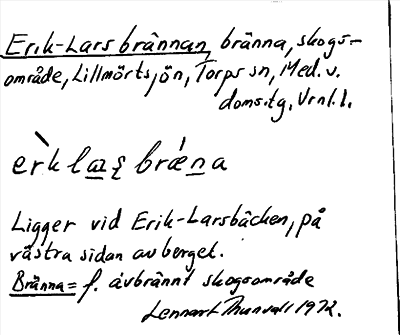 Erik-Lars brännan, bränna, skogs-
område, Lillmörtsjön, Torps sn, Med. v.
doms.tg, Vrnl. l.
erk la brna
Ligger vid Erik-Larsbäcken, på
västra sidan av berget.
Bränna = f. avbrännt skogsområde
Lennart Thunvall 1972.